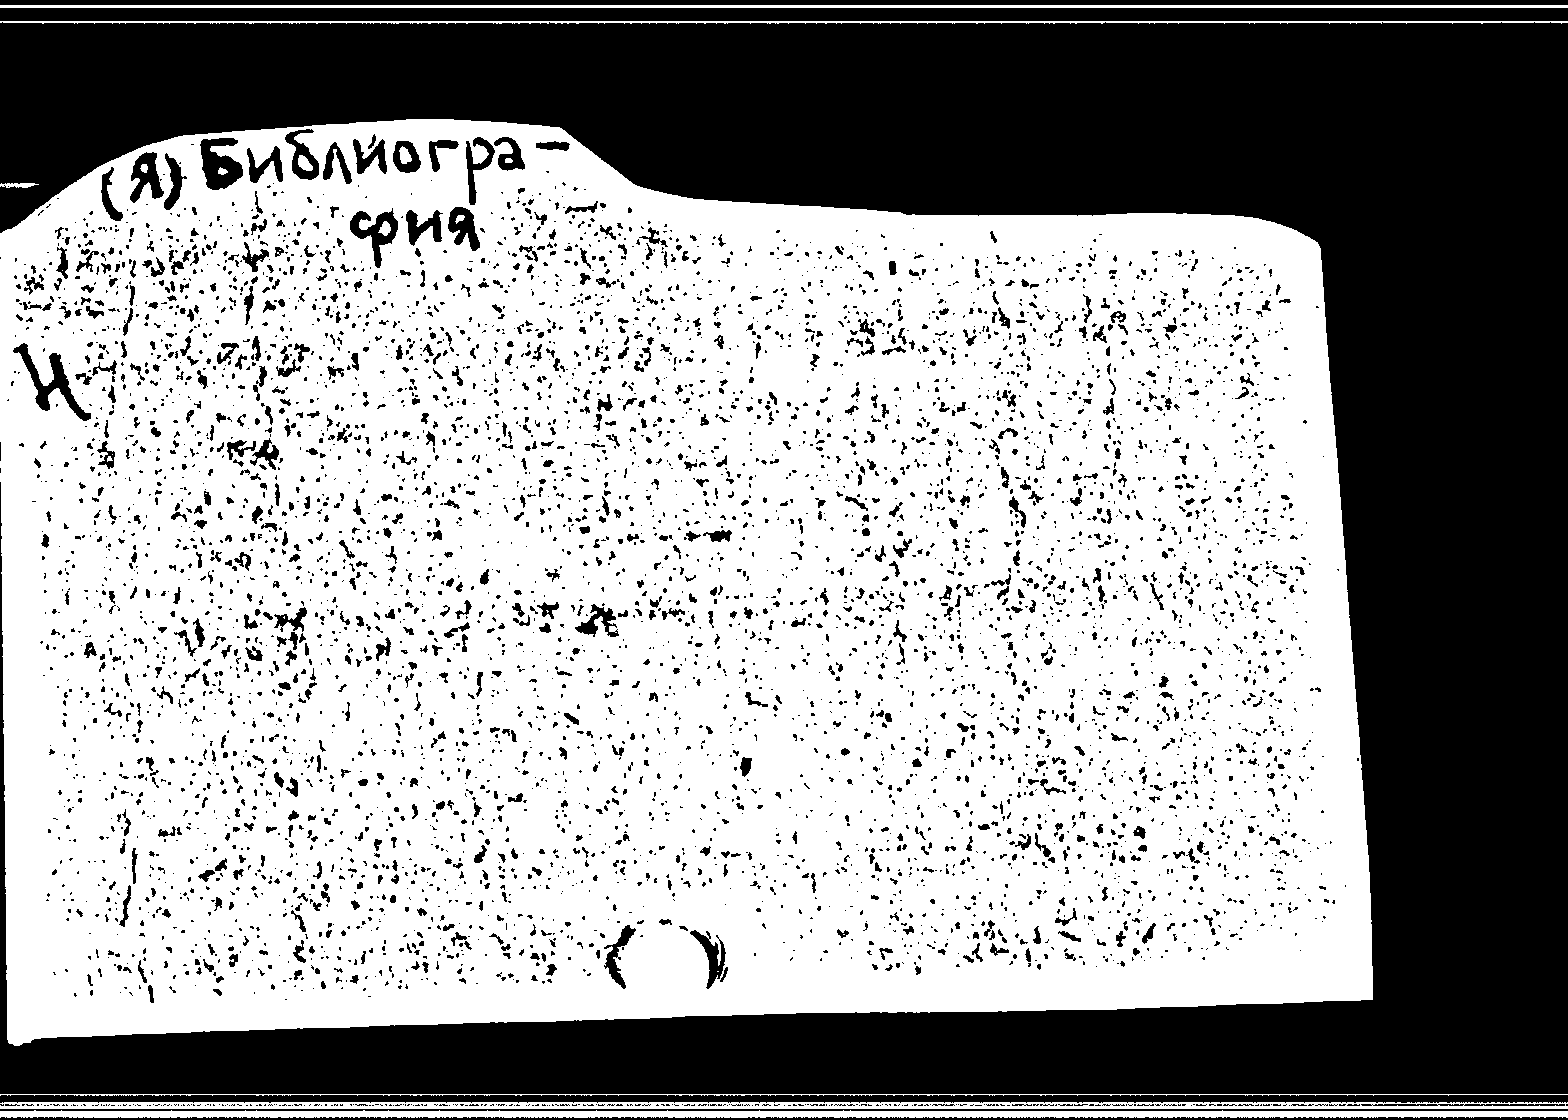 (Я) Библиогра-
фия
И